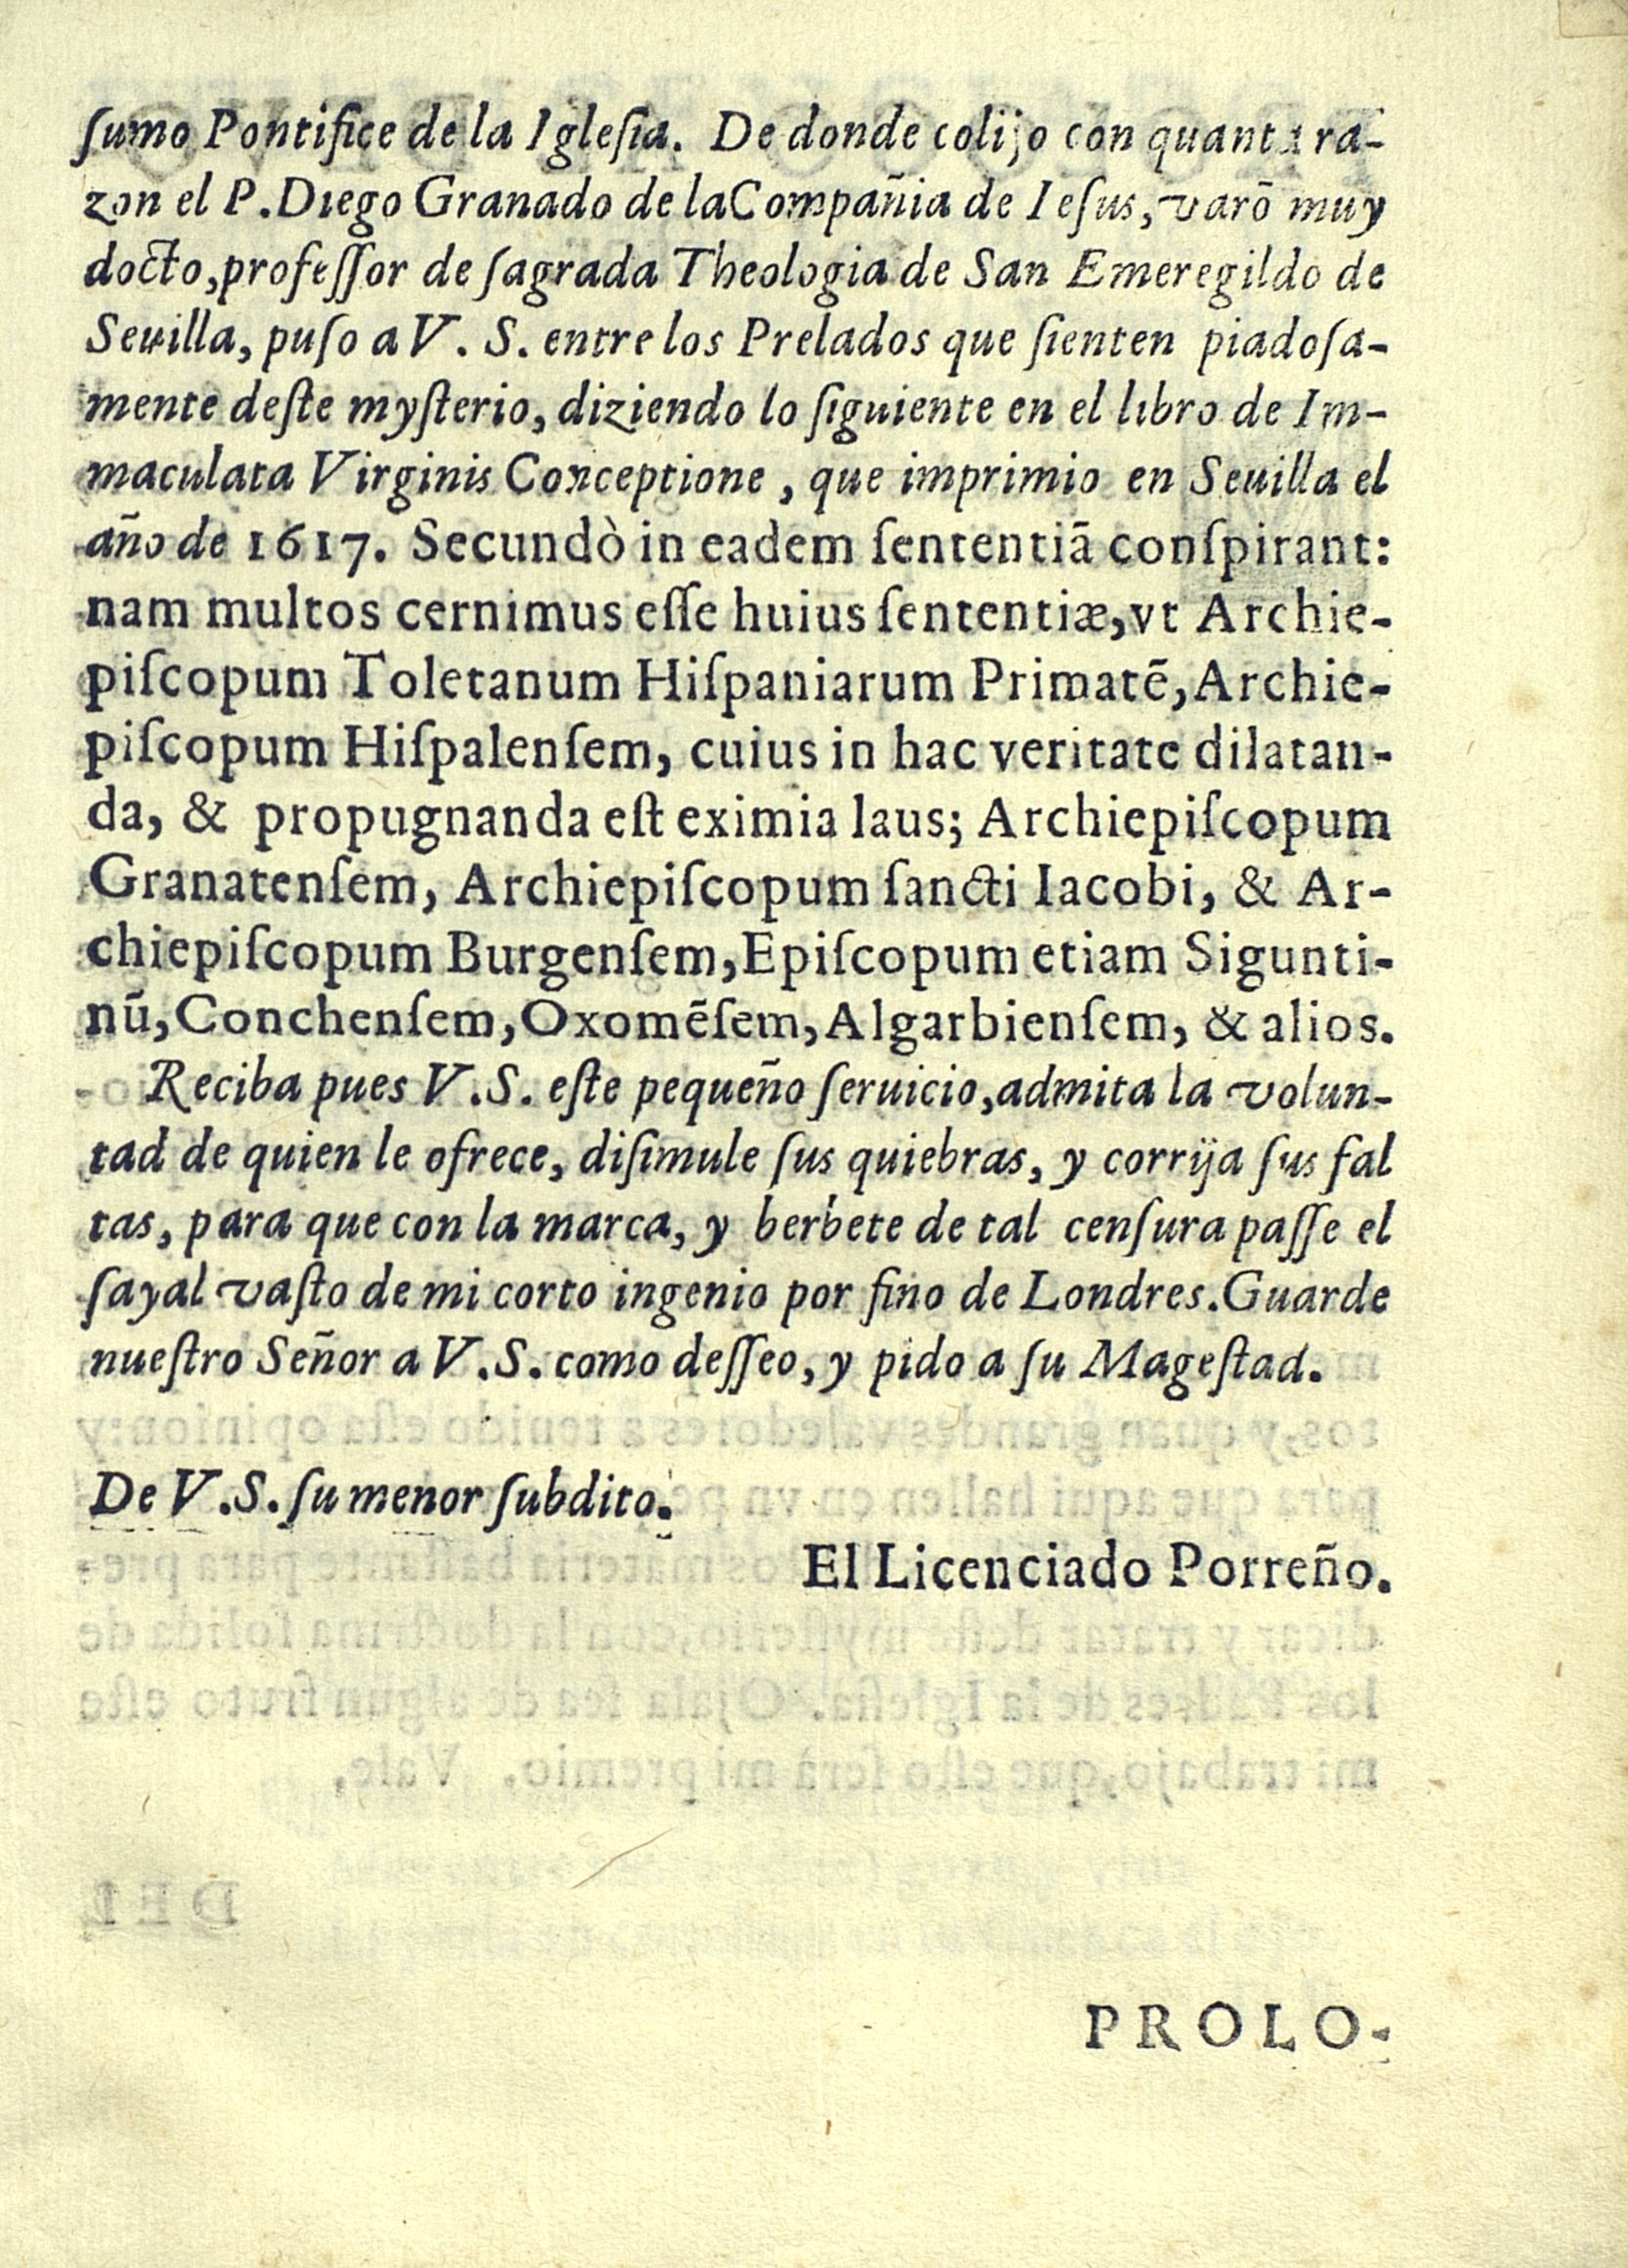 ſumo Pontifice de la Igleſia. De donde colijo con quanta ra-
zon el P. Diego Granado de la Compañia de Ieſus, varõ muy
docto, profeſſor de ſagrada Theologia de San Emeregildo de
Seuilla, puſo a V. S. entre los Prelados que ſienten piadoſa-
mente deſte myſterio, diziendo lo ſiguiente en el libro de Im-
maculata Virginis Conceptione, que imprimio en Seuilla el
año de 1617. Secundò in eadem ſententiã conſpirant:
nam multos cernimus eſſe huius ſententiæ, vt Archie-
piſcopum Toletanum Hiſpaniarum Primatẽ, Archie-
piſcopum Hiſpalenſem, cuius in hac veritate dilatan-
da, & propugnanda eſt eximia laus; Archiepiſcopum
Granatenſem, Archiepiſcopum ſancti Iacobi, & Ar-
chiepiſcopum Burgenſem, Epiſcopum etiam Sigunti-
nũ, Conchenſem, Oxomẽſem, Algarbienſem, & alios.
Reciba pues V. S. eſte pequeño ſeruicio, admita la volun-
tad de quien le ofrece, diſimule ſus quiebras, y corrija ſus fal
tas, para que con la marca, y berbete de tal cenſura paſſe el
ſayal vaſto de mi corto ingenio por fino de Londres. Guarde
nueſtro Señor a V. S. como deſſeo, y pido a ſu Mageſtad.
De V. S. ſu menor ſubdito.
El Licenciado Porreño.
PROLO-